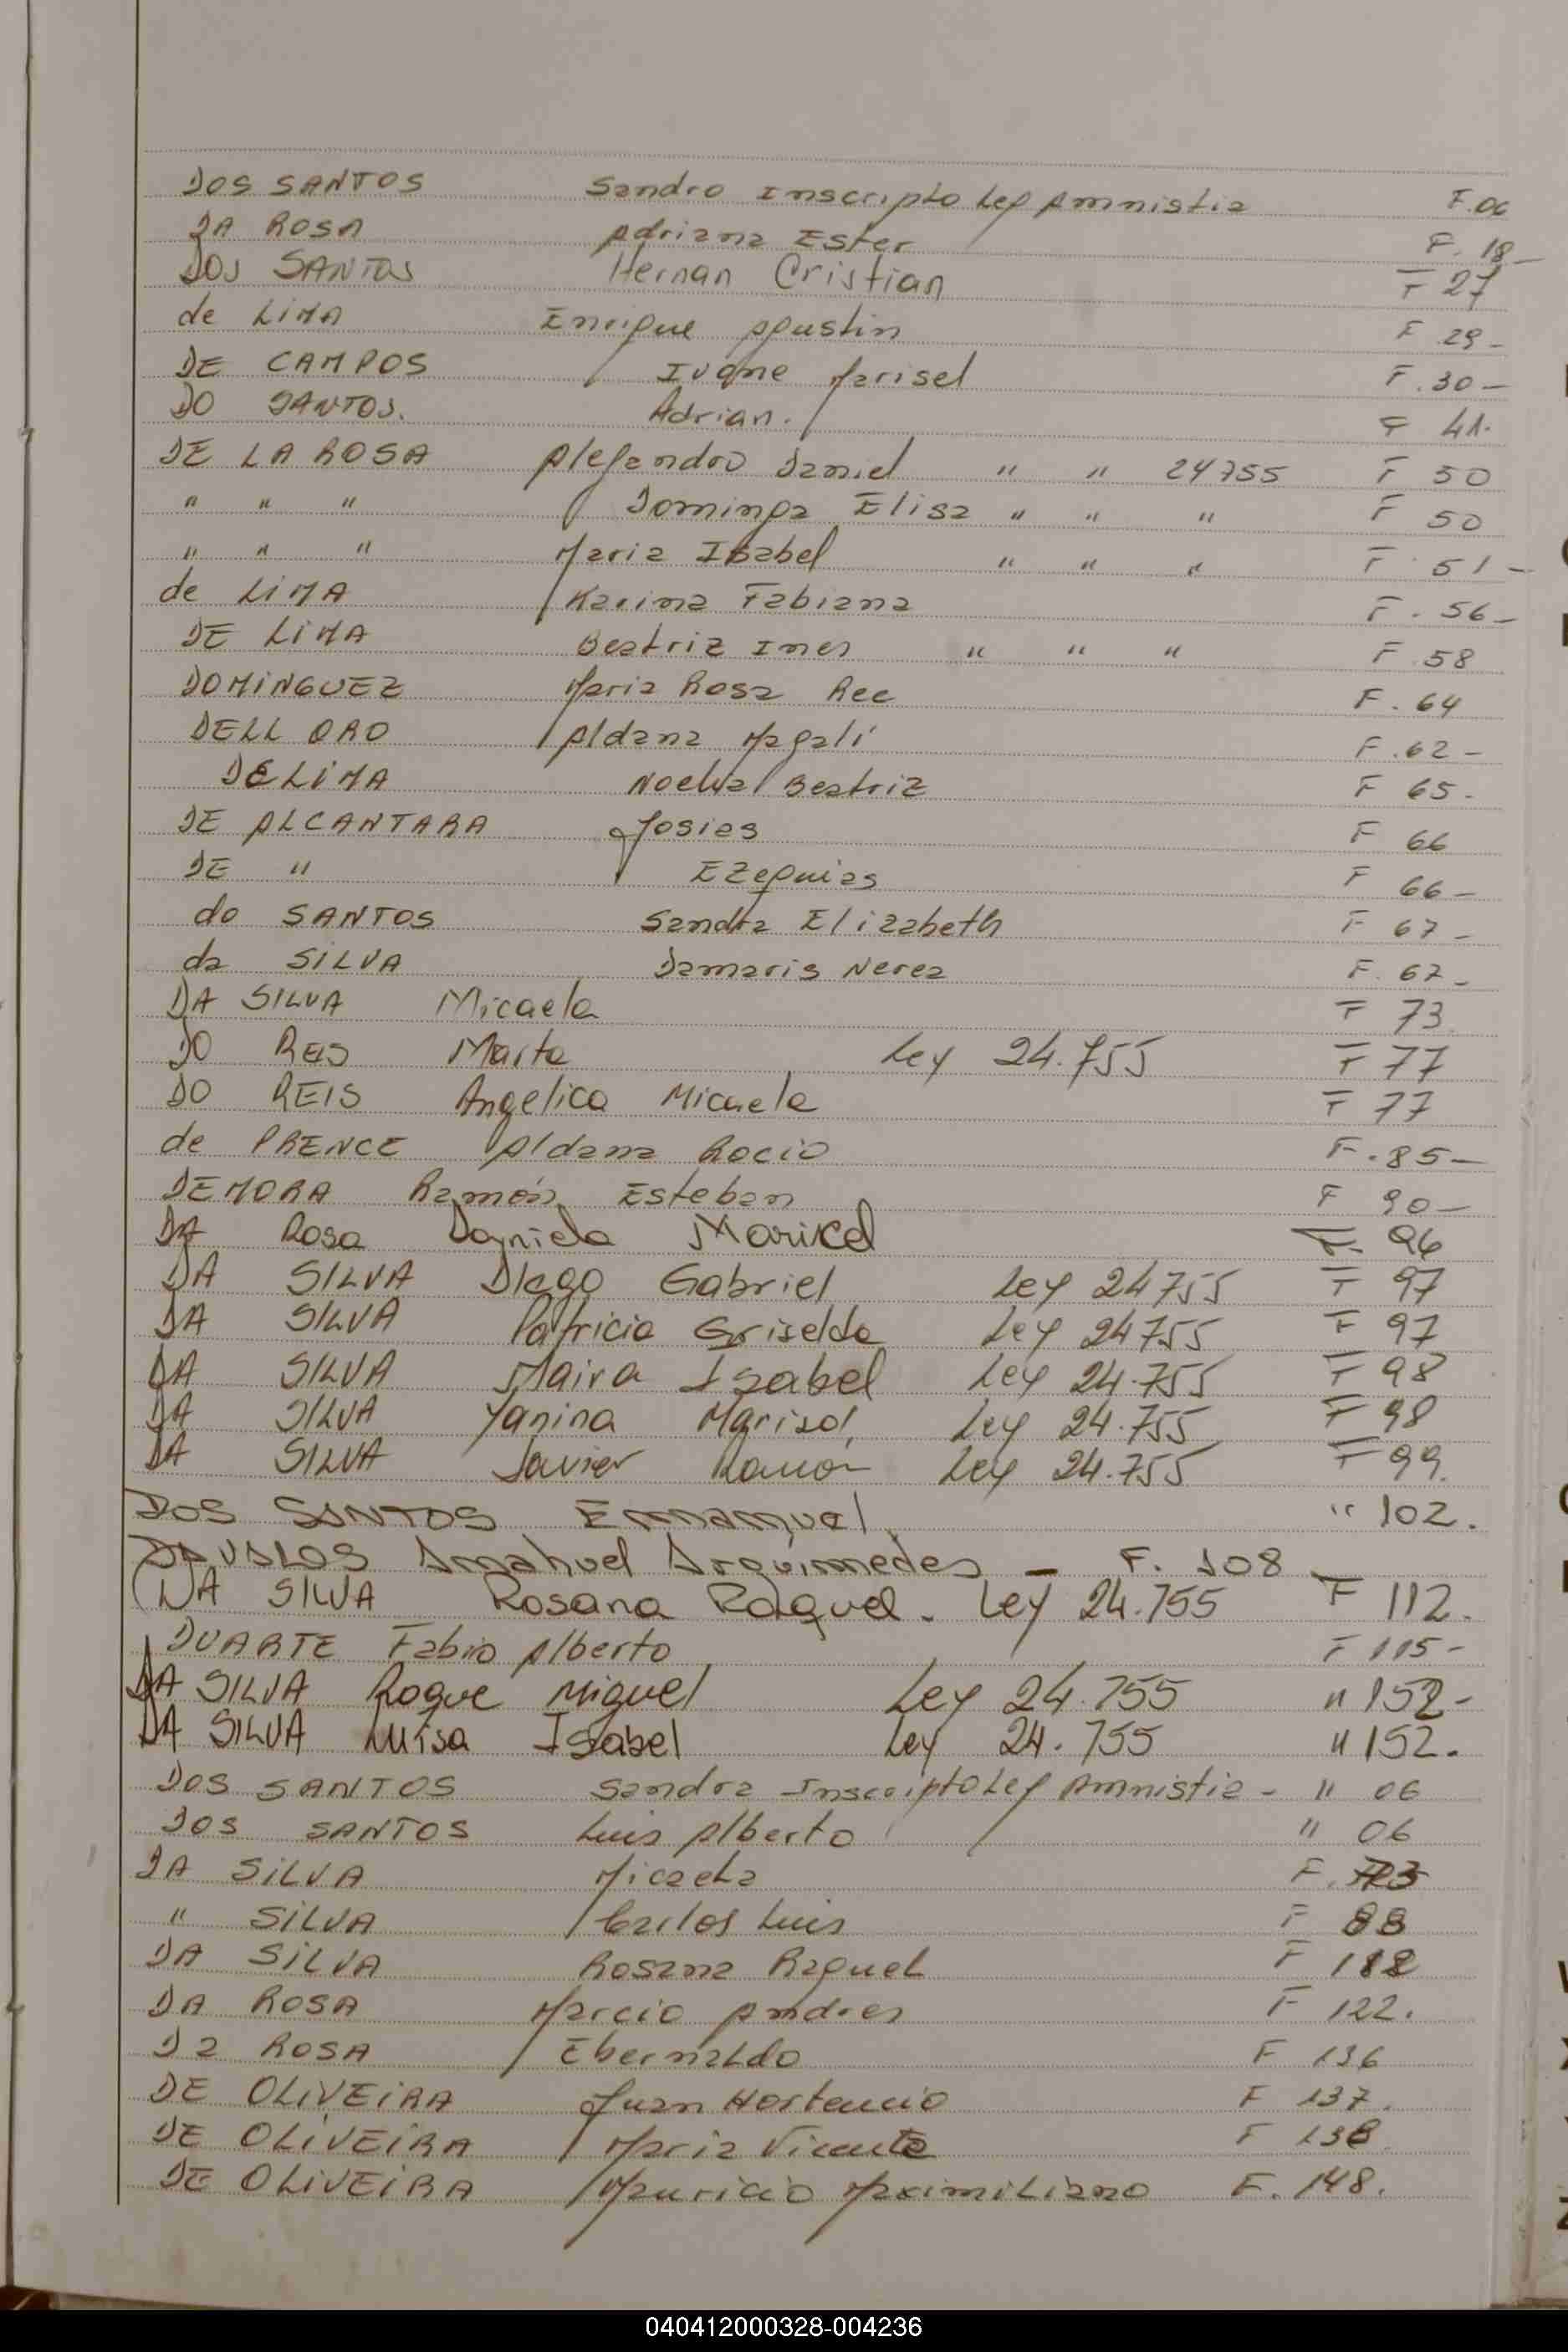 DOS SANTOS Sandro Inscripto Ley Amnistia F.06
DA ROSA Adriana Ester F. 18-
DOS SANTOS Hernan Cristian F 27
de LIMA Enrique Agustin F 29-
DE CAMPOS Ivone Marisel F.30-
DO SANTOS. Adrian. F 41.
DE LA ROSA Alejandro Daniel " " 24755 F 50
" " " Dominga Elisa " " " F 50
" " " Maria Isabel " " " F 51-
de LIMA Karina Fabiana F. 56-
DE LIMA Beatriz Ines " " " F 58
DOMINGUEZ Maria Rosa Rec F. 64
DELL ORO Aldana Magali F.62-
DELIMA Noelia Beatriz F 65.
DE ALCANTARA Josies F 66
DE " Ezequias F 66-
do SANTOS Sandra Elizabeth F 67-
da SILVA Damaris Nerea F. 67-
DA SILVA Micaela F 73
DO REIS Marta Ley 24.755 F 77
DO REIS Angelica Micaela F 77
de PRENCE Aldana Rocio F.85-
DEMORA Ramón Esteban F 90-
DA Rosa Daniela Maricel F. 96
DA SILVA Diego Gabriel Ley 24755 F 97
DA SILVA Patricia Griselda Ley 24755 F 97
DA SILVA Maira Isabel Ley 24.755 F 98
DA SILVA Yanina Marisol, Ley 24.755 F 98
DA SILVA Javier Ramon Ley 24.755 F 99.
DOS SANTOS Emmanuel " 102.
DAVALOS Amahuel Arquimedes - F. 108
DA SILVA Rosana Raquel. Ley 24.755 F 112.
DUARTE Fabio Alberto F 115-
DA SILVA Roque Miguel Ley 24.755 " 152-
DA SILVA Luisa Isabel Ley 24.755 " 152.
DOS SANTOS Sandra Inscripto Ley Amnistia - " 06
DOS SANTOS Luis Alberto " 06
DA SILVA Micaela F. 73
" SILVA Carlos Luis F 88
DA SILVA Rosana Raquel F 112
DA ROSA Marcio Andres F 122.
Da ROSA Ebernaldo F 136
DE OLIVEIRA Juan Hortencio F 137.
DE OLIVEIRA Maria Vicente F 138
DE OLIVEIRA Mauricio Maximiliano F. 148.
040412000328-004236